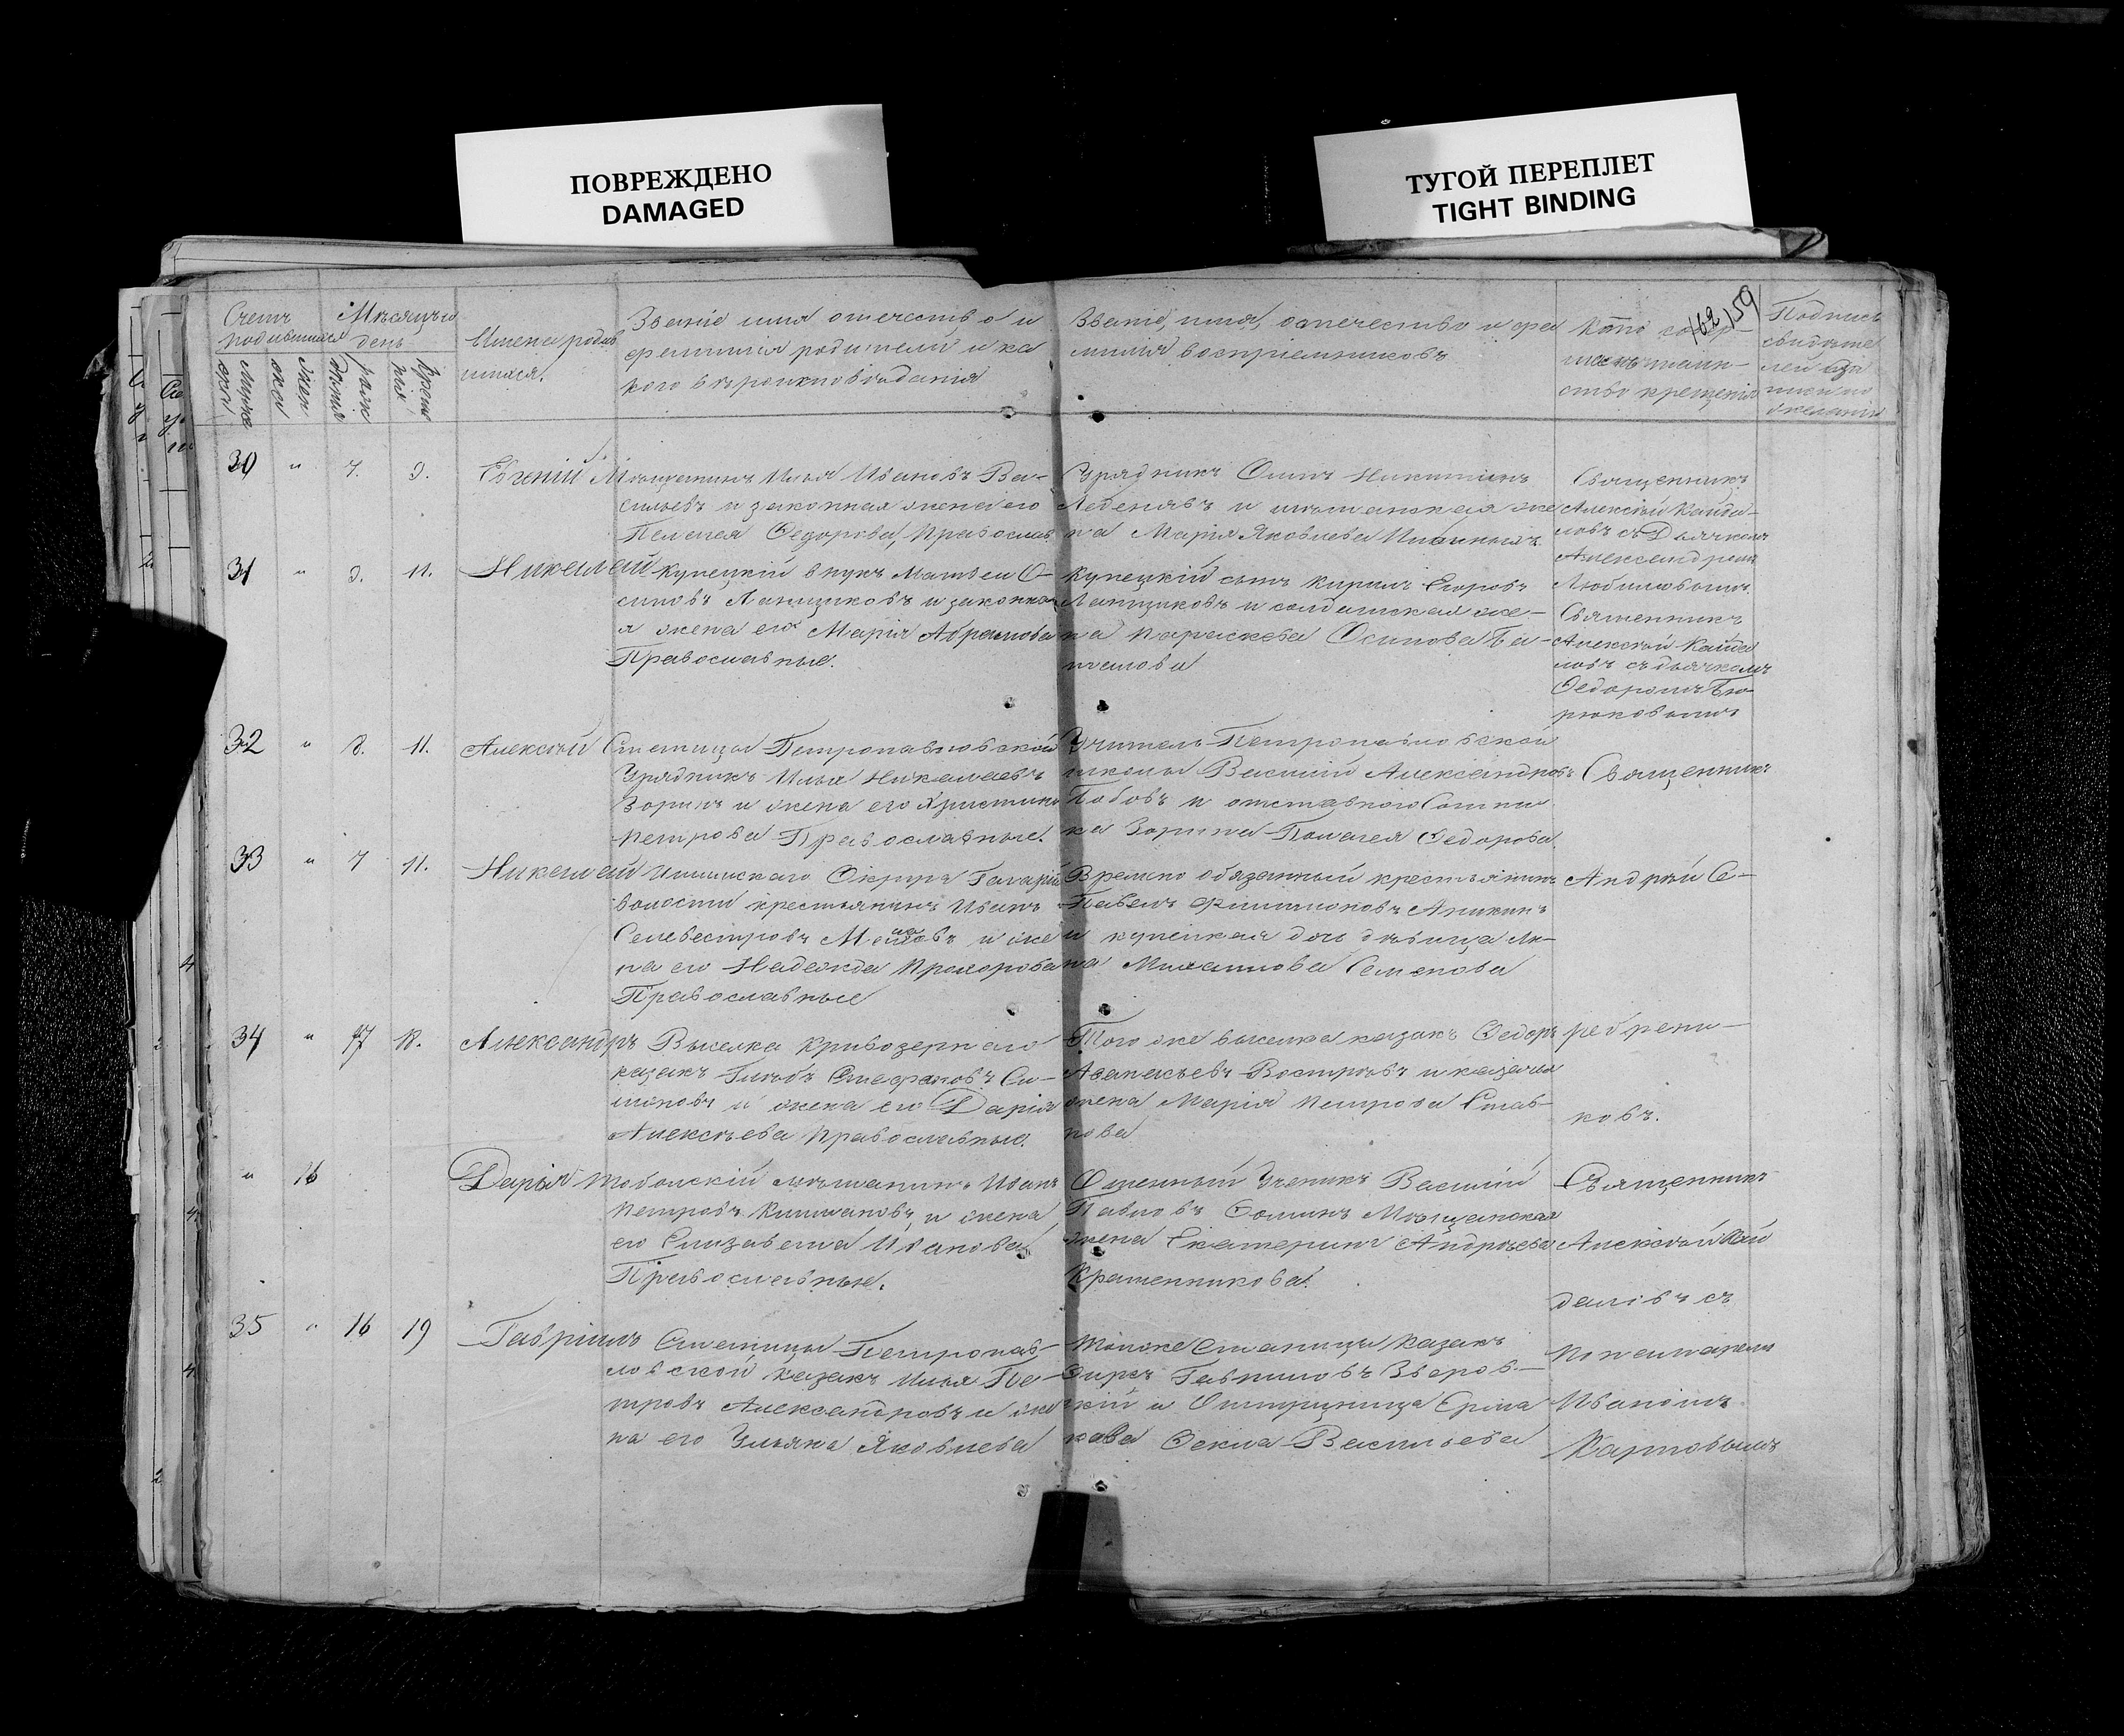 ПОВРЕЖДЕНО
DAMAGED
ТУГОЙ ПЕРЕПЛЕТ
TIGHT BINDING
162 159
Счетъ родившихся
мужеска
женска
Мѣсяцъ и день
рожденія
крещенія
Имена родившихся.
Званіе имя отечество и
фамилія родителей и ка
кого вѣроисповѣданія
Званіе, имя, отечество и фа
милія воспріемниковъ
Кто совер-
шалъ таин-
ство крещенія
Подпись
свидѣте
лей
30 " 7. 9. Евгеній
Мѣщанинъ Илья Ивановъ Ва-
сильевъ и законная жена его
Пелагея Федорова, Православ.
Урядникъ Никитинъ
и мѣщанская же
на Марія Яковлева
Священникъ
Алексѣй Кайда-
ловъ съ Дьячкомъ
Александромъ
Любимовымъ.
31 " 9. 11. Николай
Купецкій внукъ Матвей О-
сиповъ Лапшиковъ и законна
я жена его Марія Абрамова
Православные.
Купецкій сынъ Кирилъ Егоровъ
Лапшиковъ и солдатская же-
на Параскева Осипова Ба-
талова
Священникъ
Алексѣй Кайда
ловъ съ дьячкомъ
Федоромъ Би-
рюковымъ
32 " 8. 11. Алексѣй
Станицы Петропавловской
Урядникъ Илья Николаевъ
Зоринъ и жена его Христина
Петрова Православные.
Учитель Петропавловской
школы Василій Александровъ
Бобовъ и отставного Сотни
ка Зорина Пелагея Федорова.
Священникъ
33 " 7 11. Николай
Ишимскаго Округа
волости крестьянинъ Иванъ
Селевестровъ и же
на его Надежда Прохорова
Православные
Временно обязанный крестьянинъ
Павелъ Филимоновъ Аникинъ
и купецкая дочь дѣвица Ан-
на Михаилова Семенова
Андрѣй Се-
34 " 17 18. Александръ
Выселка Кривозернаго
казакъ Глѣбъ Стефановъ Си-
моновъ и жена его Дарія
Алексѣева Православные.
Того же выселка казакъ Федоръ
Аѳанасьевъ Востровъ и казачья
жена Марія Петрова Слав-
нова
ребрени-
ковъ.
" 16 Дарья
Тобольскій мѣщанинъ Иванъ
Петровъ и жена
его Елизавета Иванова
Православные.
Ученикъ Василій
Павловъ Фоминъ Мѣщанская
жена Екатерина Андрѣева
Крашенникова.
Священникъ
Алексѣй Кай
даловъ съ
35 " 16 19 Гавріилъ
Станицы Петропав-
ловской казакъ Илья Пе-
тровъ Александровъ и же
на его Ульяна Яковлева
Тойже Станицы Казакъ
Фирсъ Гавриловъ Зверов-
скій и Ерма
кова Фекла Васильева
Пономаремъ
Иваномъ
Карповымъ